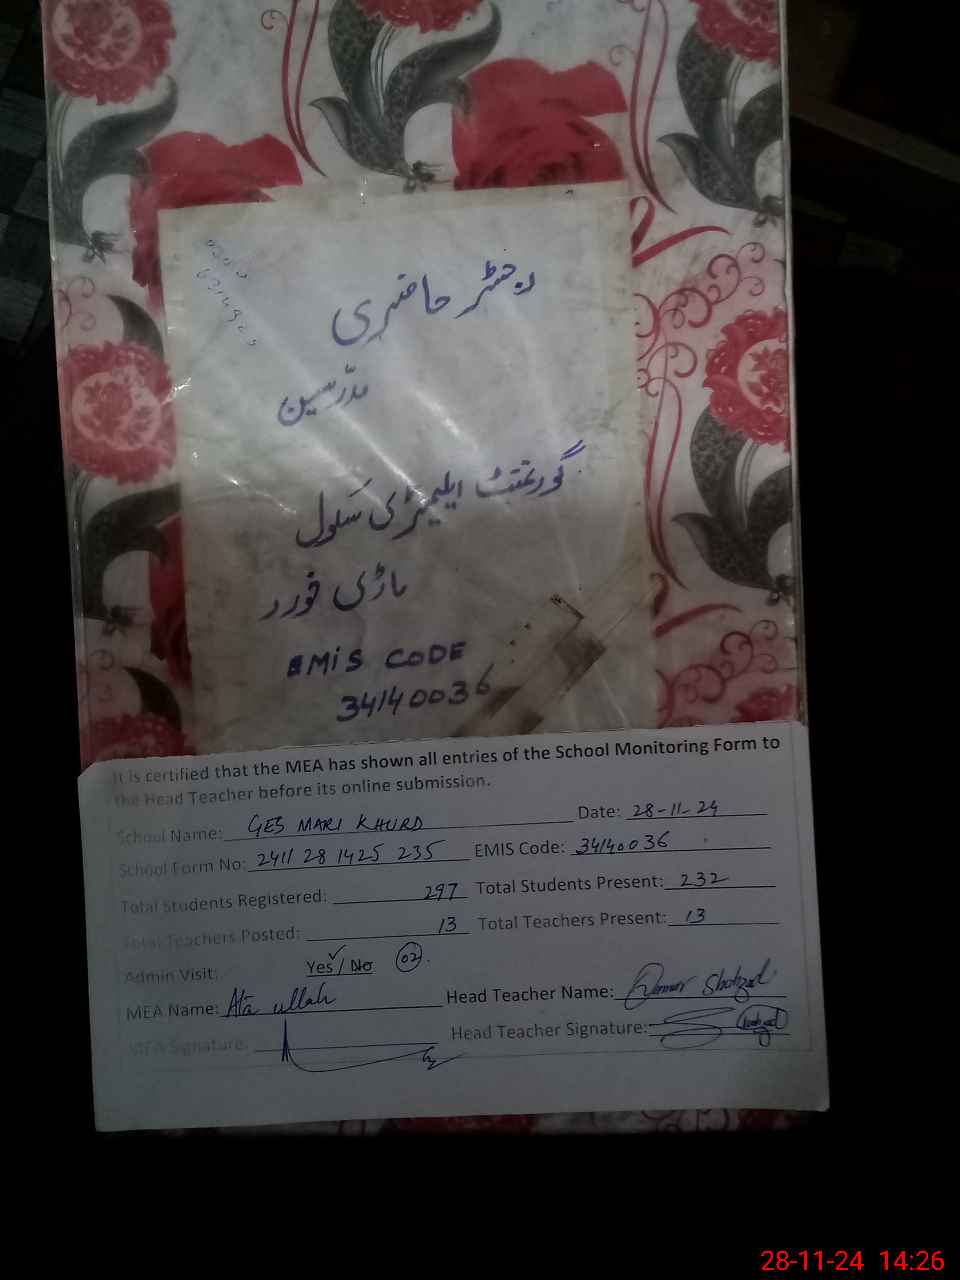 رجسٹر حاضری
مدرسین
گورنمنٹ ایلیمنٹری سکول
ماڑی خورد
EMIS CODE
34140036
It is certified that the MEA has shown all entries of the School Monitoring Form to
the Head Teacher before its online submission.
School Name: GES MARI KHURD Date: 28-11-24
School Form No: 2411 28 1425 235 EMIS Code: 34140036
Total Students Registered: 297 Total Students Present: 232
Total Teachers Posted: 13 Total Teachers Present: 13
Admin Visit: Yes / No 02
MEA Name: Ata ullah Head Teacher Name: Shahzad
MEA Signature: Head Teacher Signature:
28-11-24 14:26